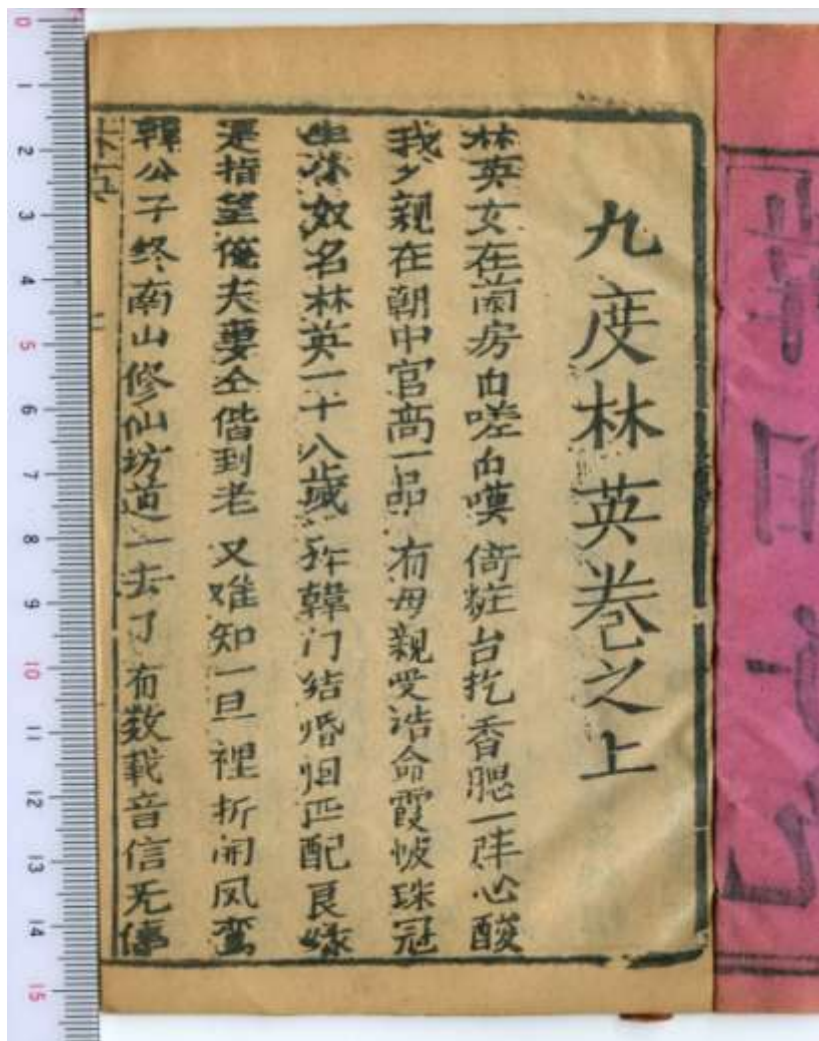 九度林英卷之上
林英女在房自嗟自嘆 倚粧台扢香腮一阵心酸
我父親在朝中官高一品 有母親受诰命霞帔珠冠
生奴名林英一十八歲 许韓门结婚姻匹配良缘
是指望俺夫妻仝偕到老 又难知一旦裡折開凤鸾
韓公子终南山修仙坊道一去了 有数載音信无
0
1
2
3
4
5
6
7
8
9
10
11
12
13
14
15